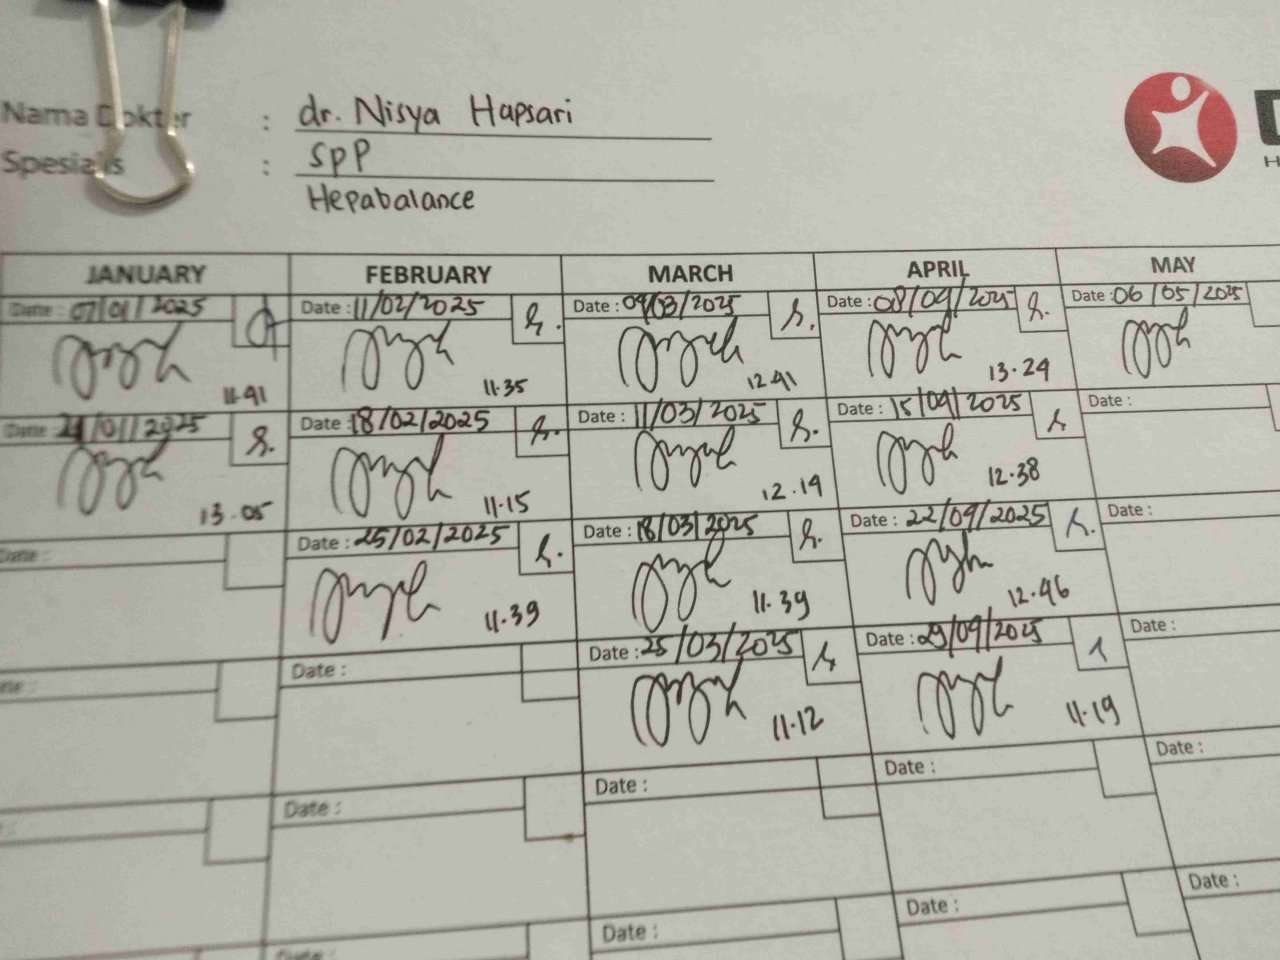 Nama Dokter : dr. Nisya Hapsari
Spesialis : SpP
Hepabalance
JANUARY FEBRUARY MARCH APRIL MAY
Date : 07/01/2025 Date : 11/02/2025 Date : 04/03/2025 Date : 08/04/2025 Date : 06/05/2025
11.41 11.35 12.41 13.24
Date : 21/01/2025 Date : 18/02/2025 Date : 11/03/2025 Date : 15/04/2025 Date :
13.05 11.15 12.14 12.38
Date : Date : 25/02/2025 Date : 18/03/2025 Date : 22/04/2025 Date :
11.39 11.39 12.46
Date : Date : 25/03/2025 Date : 29/04/2025 Date :
11.12 11.19
Date : Date : Date : Date :
Date : Date : Date :
Date :